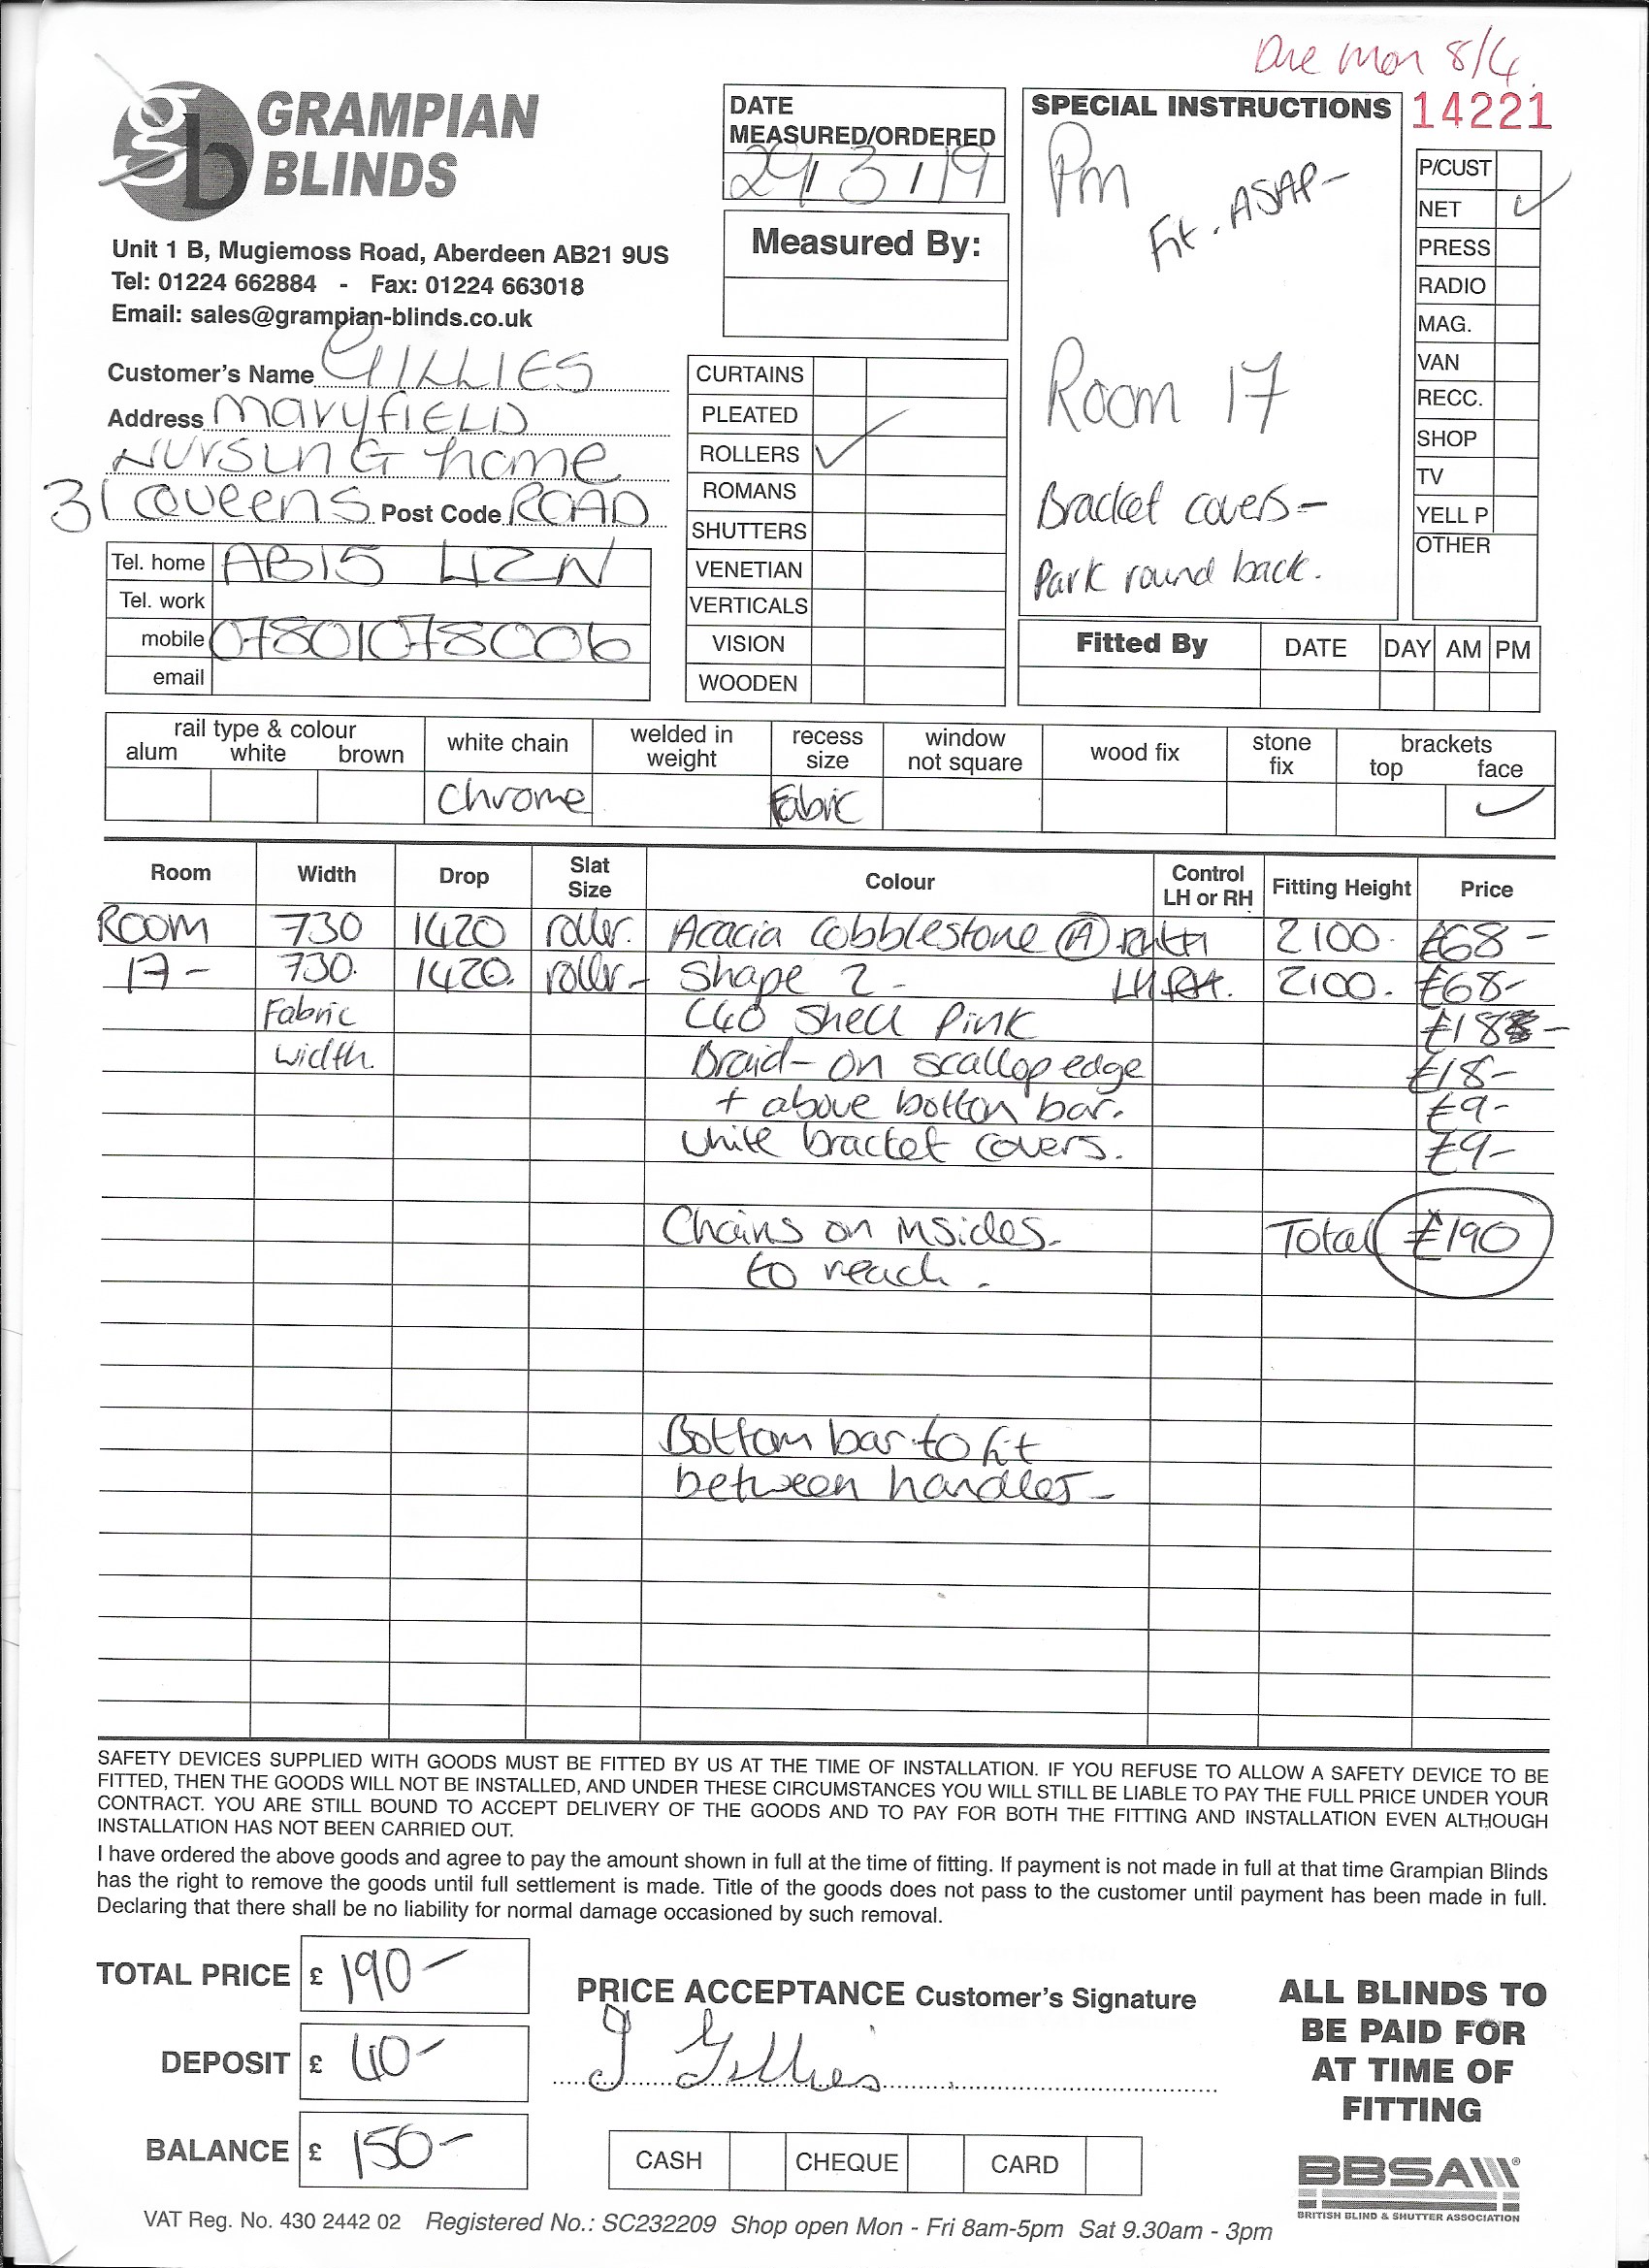 Due mon 8/4
14221
gb GRAMPIAN
BLINDS
Unit 1 B, Mugiemoss Road, Aberdeen AB21 9US
Tel: 01224 662884 - Fax: 01224 663018
Email: sales@grampian-blinds.co.uk
Customer's Name GILLIES
Address MARYFIELD
NURSING home
31 Queens Post Code ROAD
Tel. home AB15 4ZN
Tel. work
mobile 07801078006
email
DATE
MEASURED/ORDERED
29/3/19
Measured By:
CURTAINS
PLEATED
ROLLERS ✓
ROMANS
SHUTTERS
VENETIAN
VERTICALS
VISION
WOODEN
SPECIAL INSTRUCTIONS
Pm
Fit. ASAP-
Room 17
Bracket covers-
Park round back.
P/CUST
NET ✓
PRESS
RADIO
MAG.
VAN
RECC.
SHOP
TV
YELL P
OTHER
Fitted By DATE DAY AM PM
rail type & colour
alum white brown
white chain
chrome
welded in
weight
recess
size
Fabric
window
not square
wood fix
stone
fix
brackets
top face
✓
Room Width Drop Slat Size Colour Control LH or RH Fitting Height Price
ROOM 730 1420 roller. Acacia Cobblestone (A) 2100. £68-
17- 730. 1420. roller- Shape 2- LH 2100. £68-
Fabric C40 Shell Pink £18-
width. Braid- on scallop edge £18-
+ above bottom bar. £9-
white bracket covers. £9-
Chains on insides. Total £190
to reach.
Bottom bar to fit
between handles-
SAFETY DEVICES SUPPLIED WITH GOODS MUST BE FITTED BY US AT THE TIME OF INSTALLATION. IF YOU REFUSE TO ALLOW A SAFETY DEVICE TO BE
FITTED, THEN THE GOODS WILL NOT BE INSTALLED, AND UNDER THESE CIRCUMSTANCES YOU WILL STILL BE LIABLE TO PAY THE FULL PRICE UNDER YOUR
CONTRACT. YOU ARE STILL BOUND TO ACCEPT DELIVERY OF THE GOODS AND TO PAY FOR BOTH THE FITTING AND INSTALLATION EVEN ALTHOUGH
INSTALLATION HAS NOT BEEN CARRIED OUT.
I have ordered the above goods and agree to pay the amount shown in full at the time of fitting. If payment is not made in full at that time Grampian Blinds
has the right to remove the goods until full settlement is made. Title of the goods does not pass to the customer until payment has been made in full.
Declaring that there shall be no liability for normal damage occasioned by such removal.
TOTAL PRICE £ 190-
DEPOSIT £ 40-
BALANCE £ 150-
PRICE ACCEPTANCE Customer's Signature
J Gillies
CASH CHEQUE CARD
ALL BLINDS TO
BE PAID FOR
AT TIME OF
FITTING
BBSA
BRITISH BLIND & SHUTTER ASSOCIATION
VAT Reg. No. 430 2442 02 Registered No.: SC232209 Shop open Mon - Fri 8am-5pm Sat 9.30am - 3pm